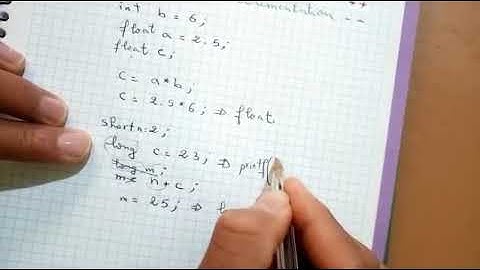 int b = 6;
float a = 2.5;
float c;
c = a*b;
c = 2.5*6; ⇒ float
short n=2;
long c = 23; ⇒ printf(
long m;
n+c;
m = 25; ⇒